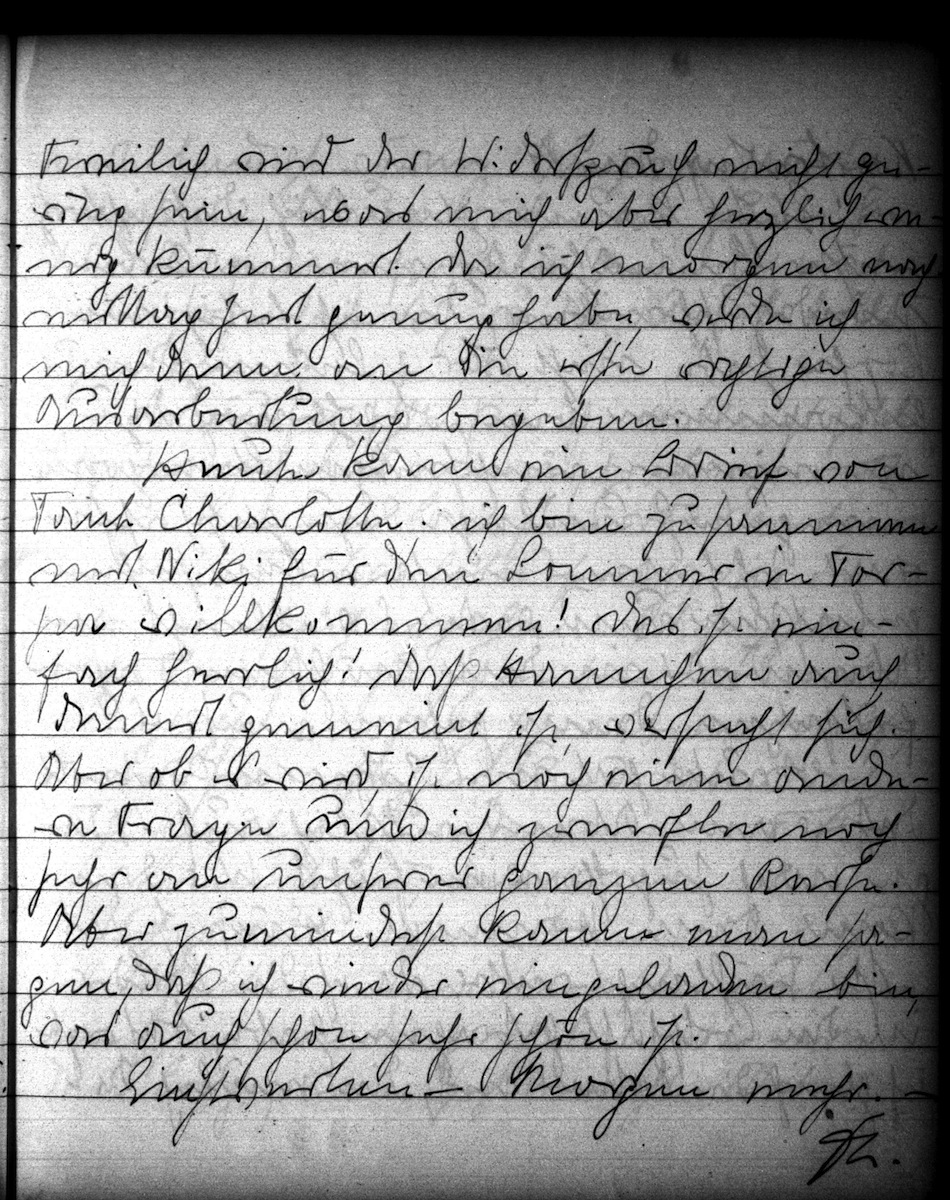 Freilich wird der Widerspruch nicht ge-
ring sein, was mich aber herzlich we-
nig kümmert. Da ich morgen nach-
mittag Zeit genug habe, werde ich
mich dann an die erste richtige
Ausarbeitung begeben.
Heute kam ein Brief von
Tante Charlotte: ich bin zusammen
mit Niki für den Sommer in Tor-
pa willkommen! Das ist ein-
fach herrlich! Daß Hannchen auch
damit gemeint ist, versteht sich.
Aber ob es wird, ist noch eine ande-
re Frage und ich zweifle noch
sehr an unserer ganzen Reise.
Aber zumindest kann man sa-
gen, daß ich wieder eingeladen bin,
was auch schon sehr schön ist.
Morgen mehr. –